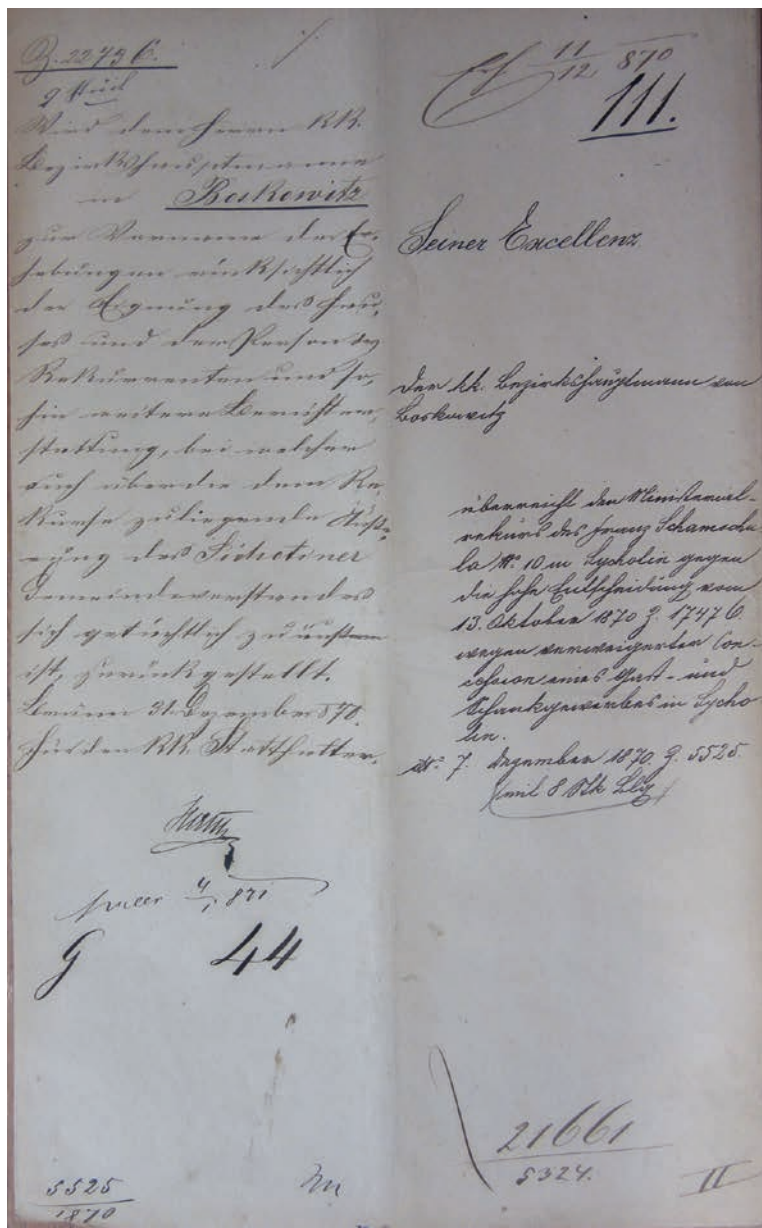 Z. 22736.
9 Stück
Wird dem Herrn KK.
Bezirkshauptmanne
in Boskowitz
zur Vornahme der Er-
hebungen rücksichtlich
der Eignung des Hau-
ses und der Person des
Rekurrenten und so-
hin weitere Berichter-
stattung, bei welcher
auch über die dem Re-
kurse zuliegende Äuße-
rung des
Gemeindevorstandes
sich gutächtlich zu äußern
ist, zurückgestellt.
Brünn 31. Dezember 870.
Für den KK. Statthalter.
4/1 871
G 44
5525
1870
11/12 870
111.
Seiner Excellenz
Der kk. Bezirkshauptmann von
Boskowitz
überreicht den Ministerial-
rekurs des Franz Schamscha-
la No. 10 in Sycholin gegen
die hohe Entscheidung vom
13. Oktober 1870 Z. 17476
wegen verweigerter Con-
cession eines Gast- und
Schankgewerbes in Sycho
lin.
7. Dezember 1870. Z. 5525.
mit 8 Stk Blg
21661
5324.
II